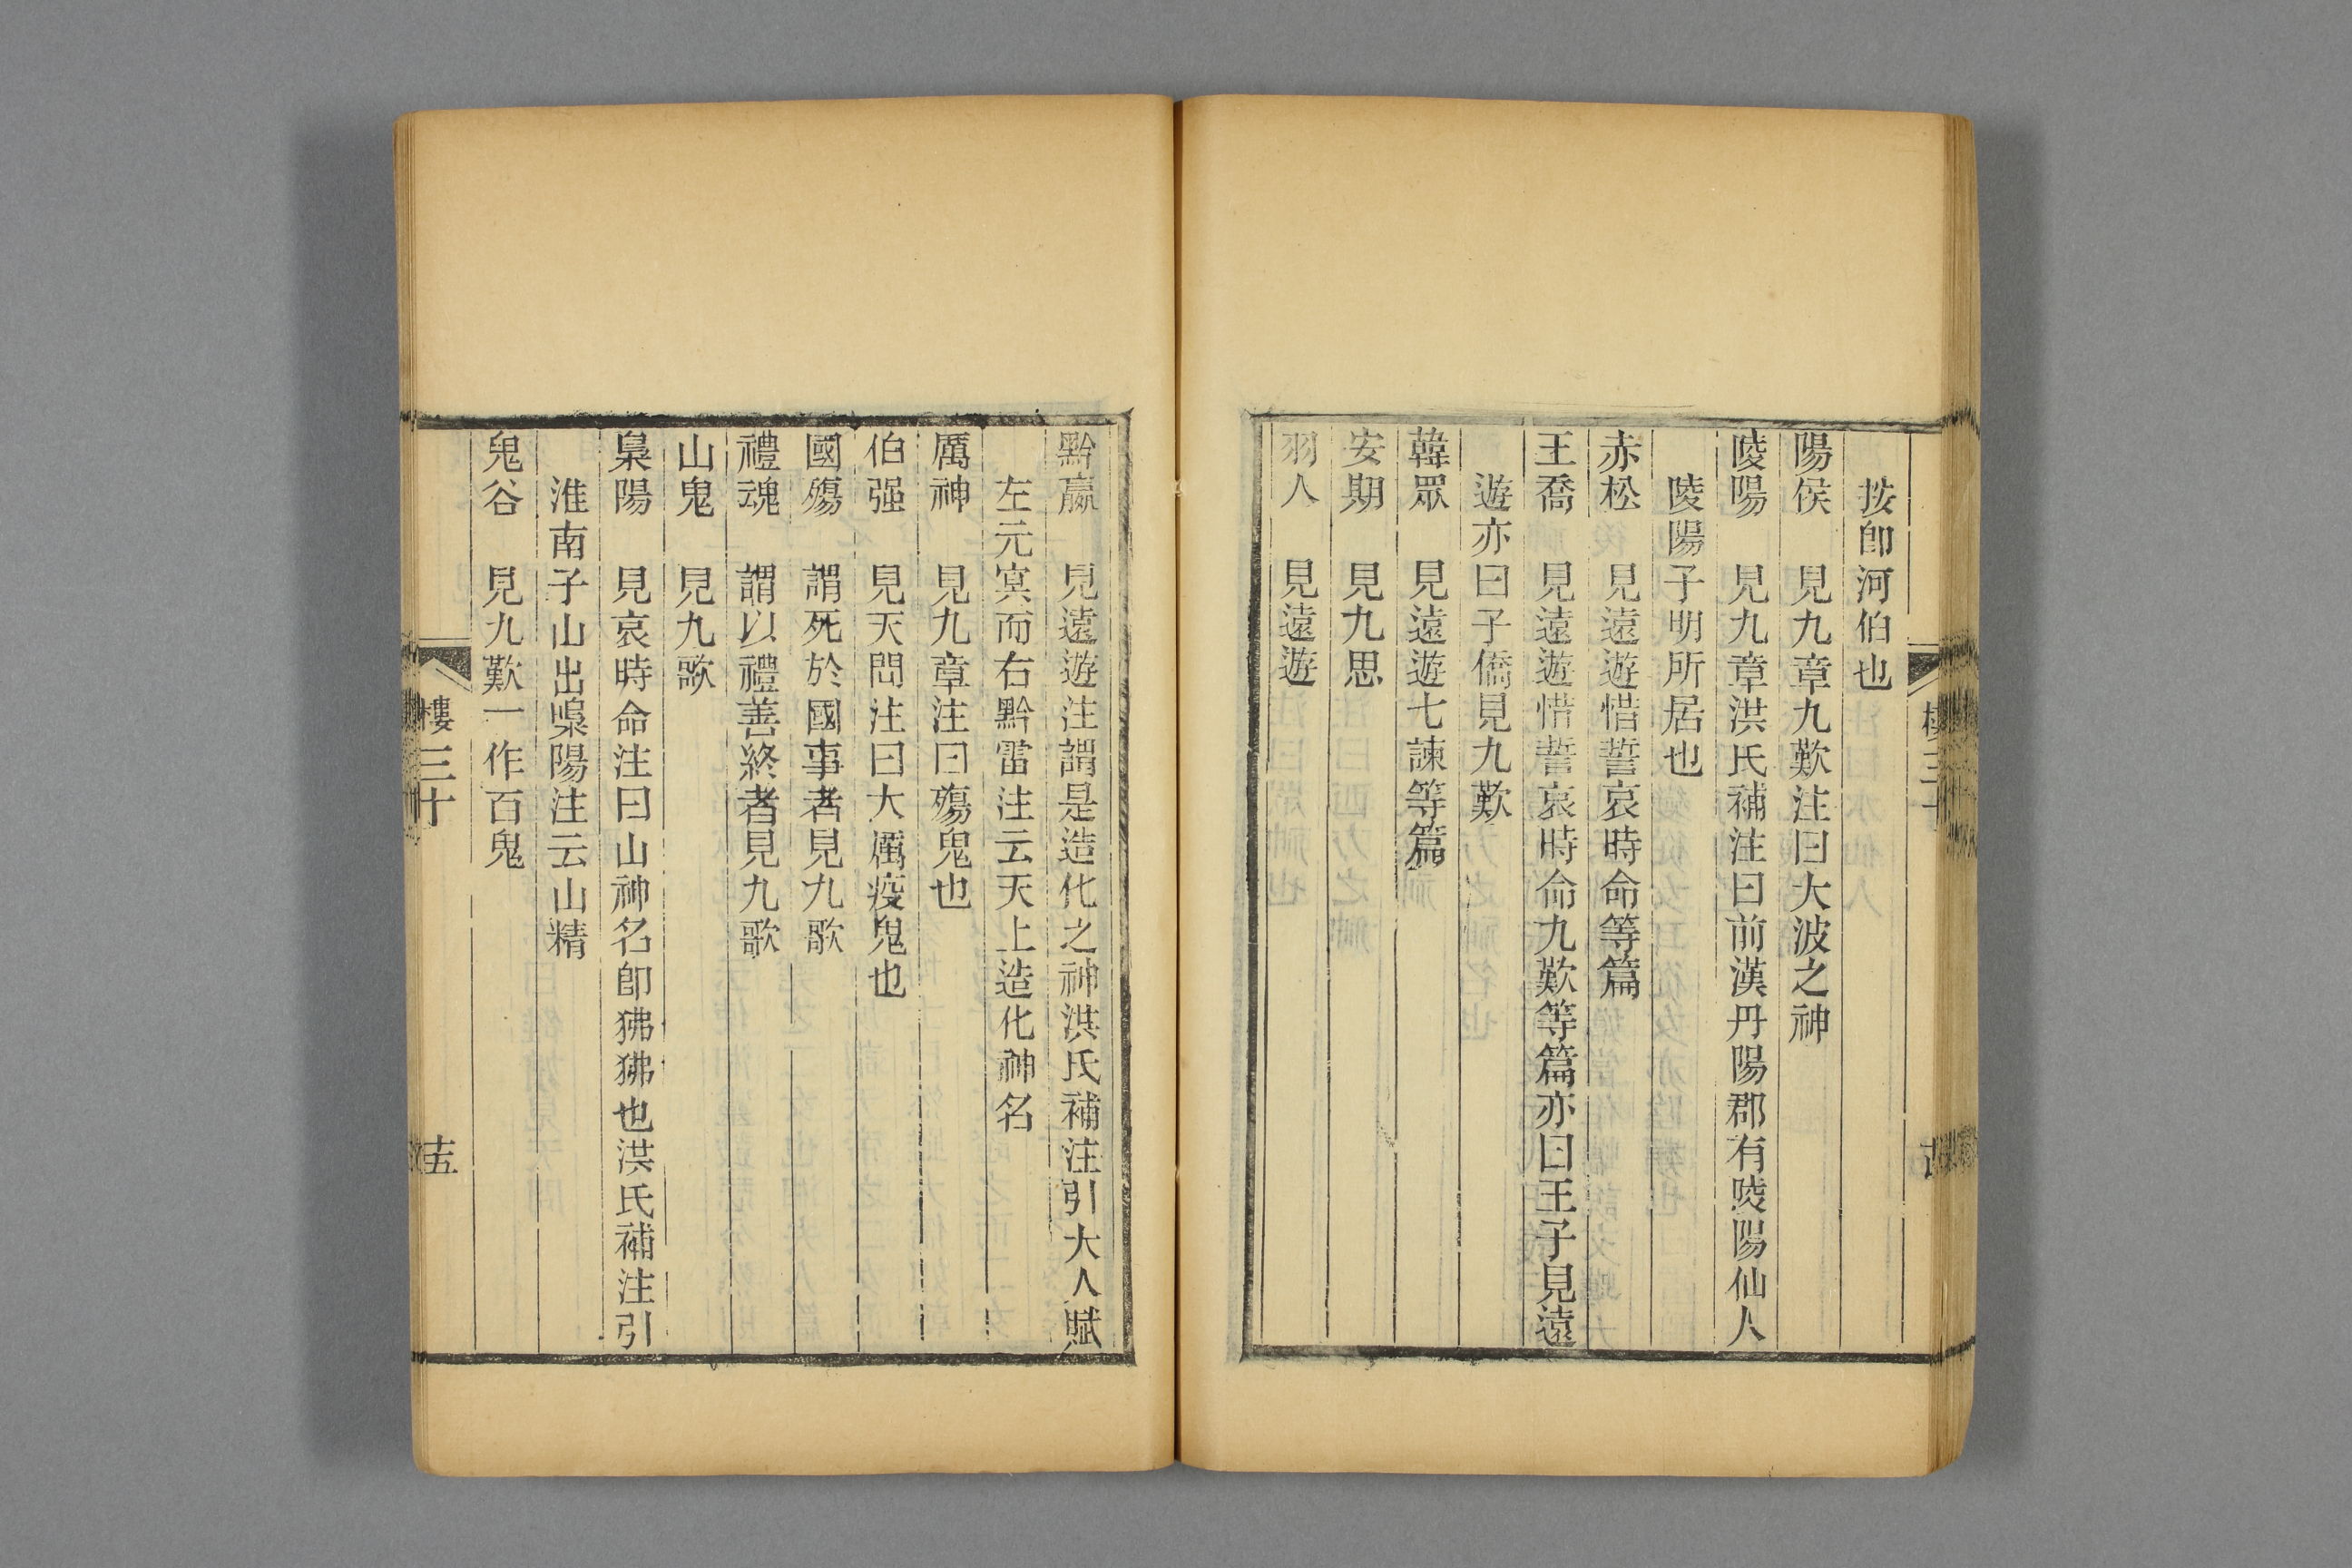 按卽河伯也
陽侯　見九章九歎注曰大波之神
陵陽　見九章洪氏補注曰前漢丹陽郡有陵陽仙人
陵陽子明所居也
赤松　見遠遊惜誓哀時命等篇
王喬　見遠遊惜誓哀時命九歎等篇亦曰王子見遠
遊亦曰子僑見九歎
韓眾　見遠遊七諫等篇
安期　見九思
羽人　見遠遊
黔嬴　見遠遊注謂是造化之神洪氏補注引大人賦
左元冥而右黔雷注云天上造化神名
厲神　見九章注曰殤鬼也
伯强　見天問注曰大厲疫鬼也
國殤　謂死於國事者見九歌
禮魂　謂以禮善終者見九歌
山鬼　見九歌
梟陽　見哀時命注曰山神名卽狒狒也洪氏補注引
淮南子山出嘄陽注云山精
鬼谷　見九歎一作百鬼
樓三十
十五